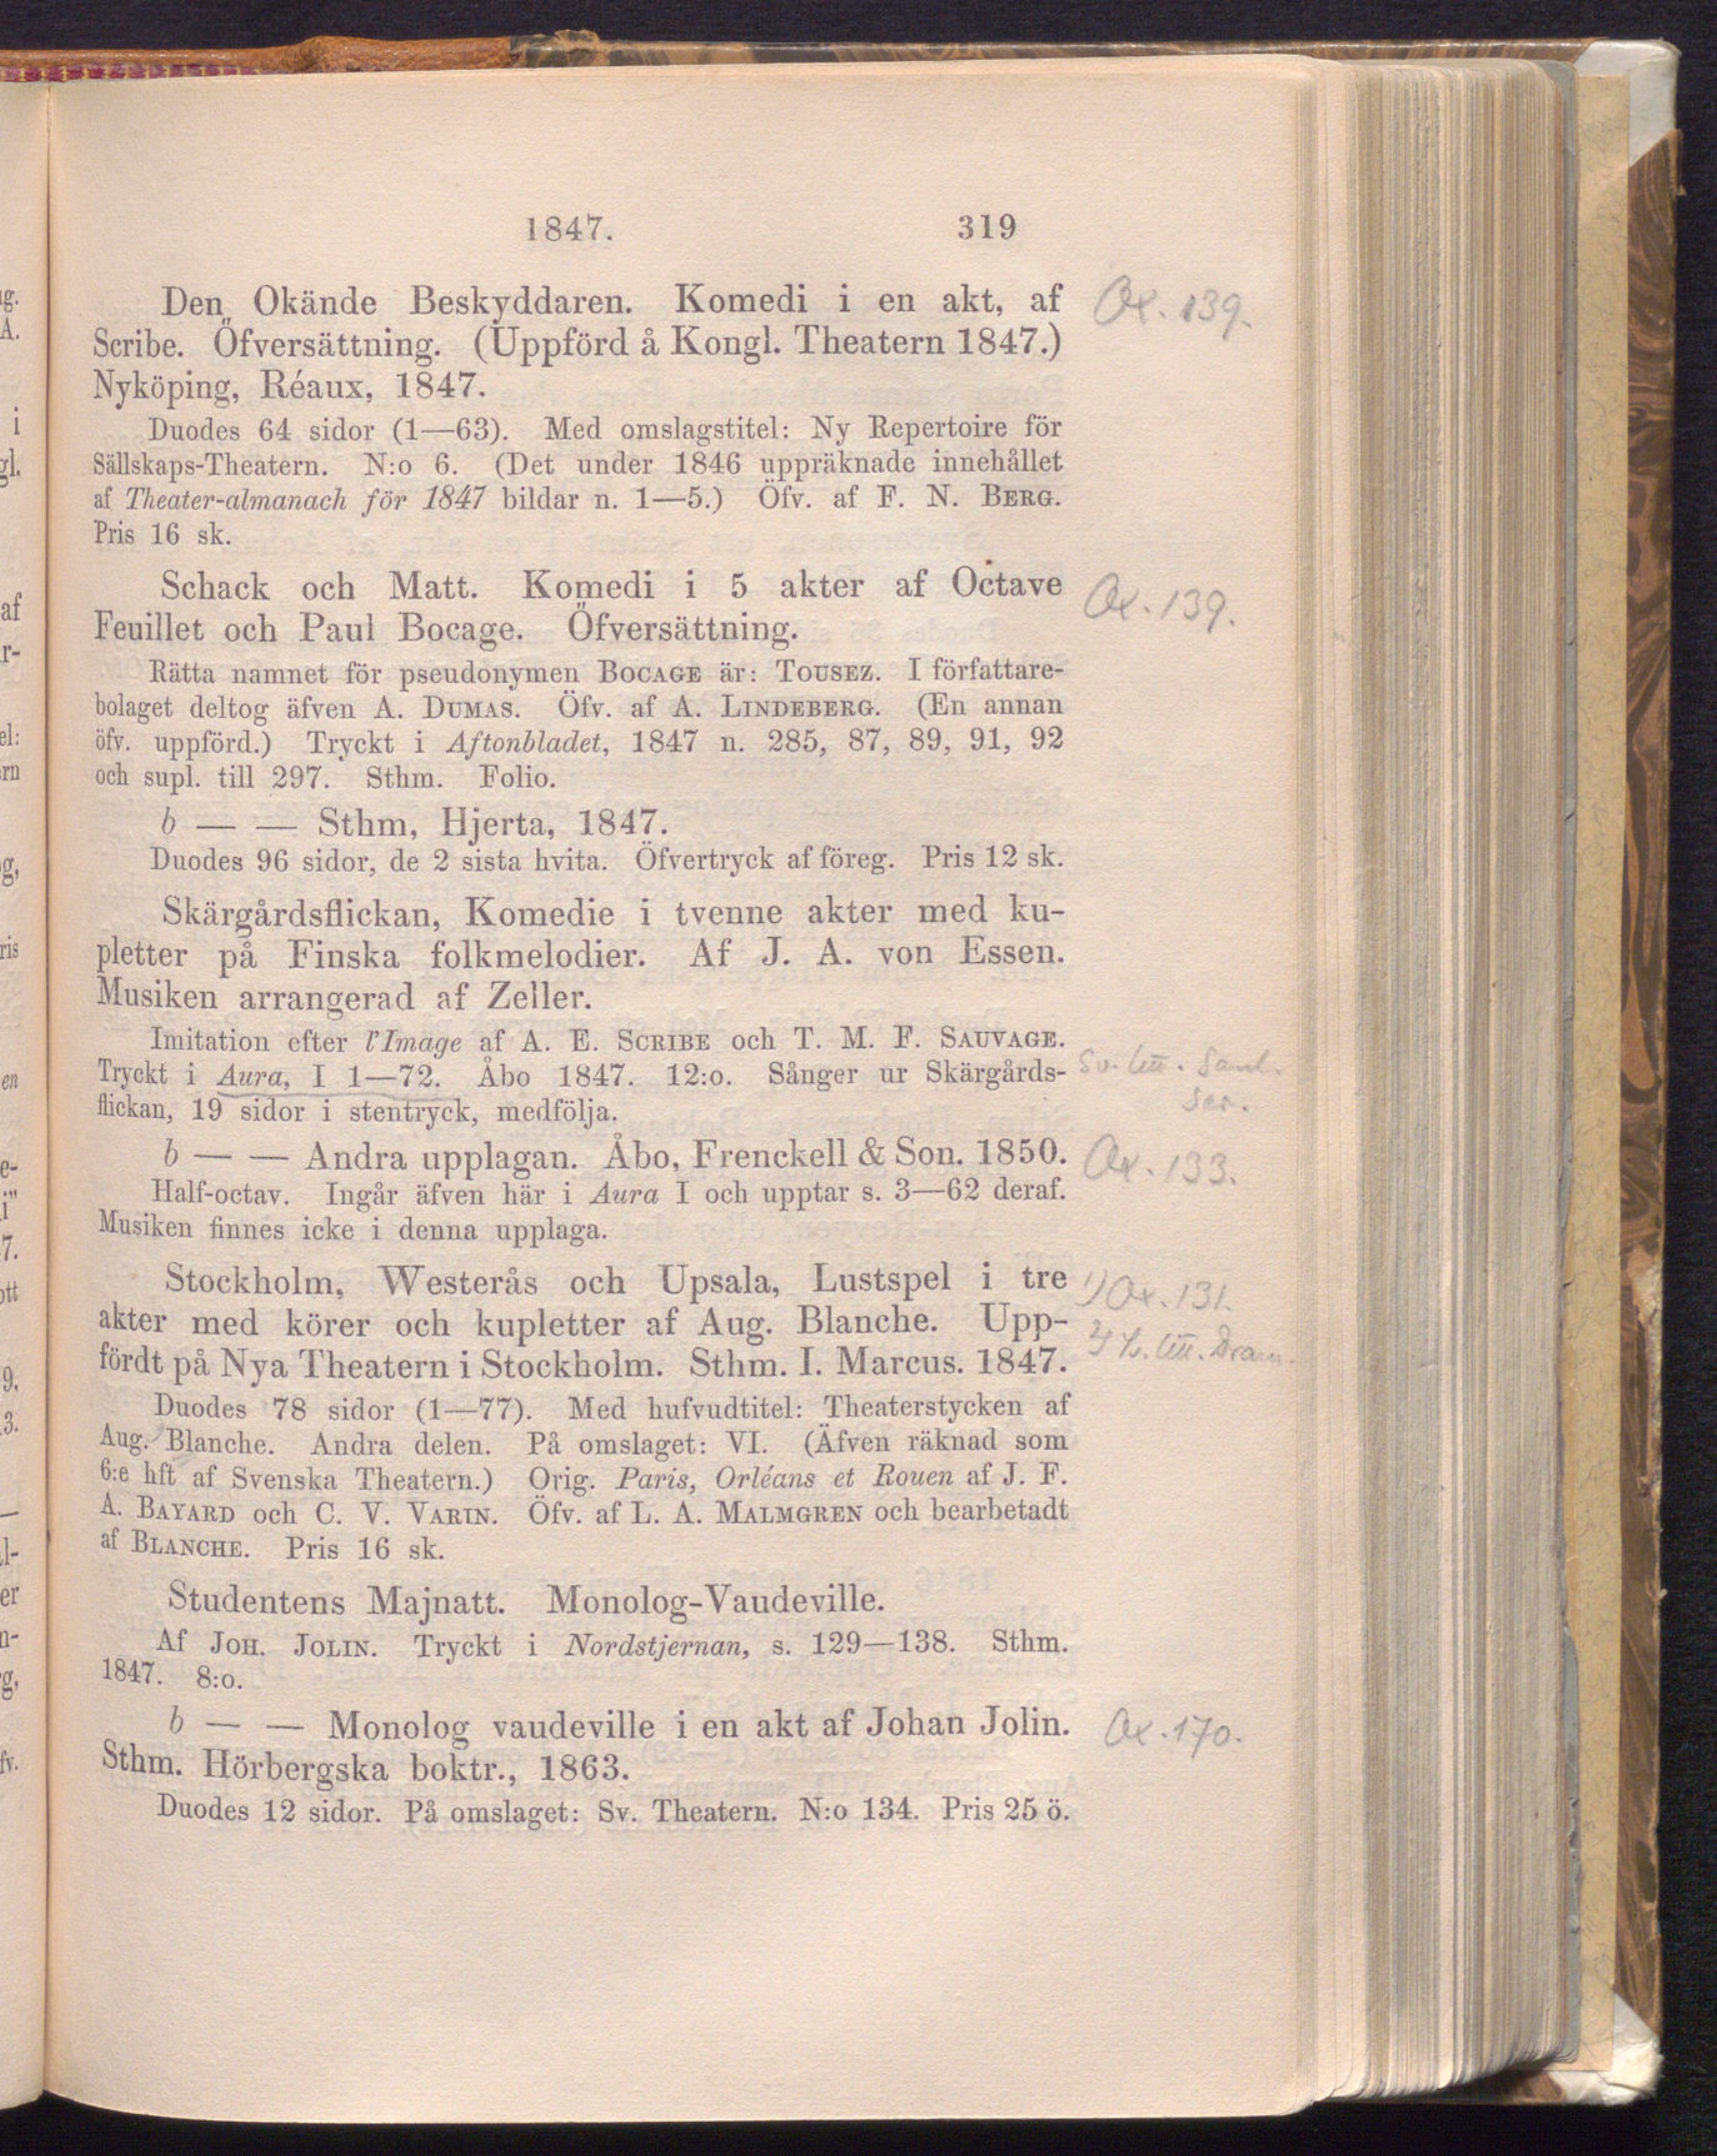 1847. 319
Den Okände Beskyddaren. Komedi i en akt, af
Ox. 139.
Scribe. Öfversättning. (Uppförd å Kongl. Theatern 1847.)
Nyköping, Réaux, 1847.
Duodes 64 sidor (1—63). Med omslagstitel: Ny Repertoire för
Sällskaps-Theatern. N:o 6. (Det under 1846 uppräknade innehållet
af Theater-almanach för 1847 bildar n. 1—5.) Öfv. af F. N. BERG.
Pris 16 sk.
Schack och Matt. Komedi i 5 akter af Octave
Ox. 139.
Feuillet och Paul Bocage. Öfversättning.
Rätta namnet för pseudonymen BOCAGE är: TOUSEZ. I författare-
bolaget deltog äfven A. DUMAS. Öfv. af A. LINDEBERG. (En annan
öfv. uppförd.) Tryckt i Aftonbladet, 1847 n. 285, 87, 89, 91, 92
och supl. till 297. Sthm. Folio.
b — — Sthm, Hjerta, 1847.
Duodes 96 sidor, de 2 sista hvita. Öfvertryck af föreg. Pris 12 sk.
Skärgårdsflickan, Komedie i tvenne akter med ku-
pletter på Finska folkmelodier. Af J. A. von Essen.
Musiken arrangerad af Zeller.
Imitation efter l'Image af A. E. SCRIBE och T. M. F. SAUVAGE.
Tryckt i Aura, I 1—72. Åbo 1847. 12:o. Sånger ur Skärgårds-
Sv. litt. Saml.
Ser.
flickan, 19 sidor i stentryck, medfölja.
b — — Andra upplagan. Åbo, Frenckell & Son. 1850.
Ox. 133.
Half-octav. Ingår äfven här i Aura I och upptar s. 3—62 deraf.
Musiken finnes icke i denna upplaga.
Stockholm, Westerås och Upsala, Lustspel i tre
1) Ox. 131.
akter med körer och kupletter af Aug. Blanche. Upp-
2) litt. Dram.
fördt på Nya Theatern i Stockholm. Sthm. I. Marcus. 1847.
Duodes 78 sidor (1—77). Med hufvudtitel: Theaterstycken af
Aug. Blanche. Andra delen. På omslaget: VI. (Äfven räknad som
6:e hft af Svenska Theatern.) Orig. Paris, Orléans et Rouen af J. F.
A. BAYARD och C. V. VARIN. Öfv. af L. A. MALMGREN och bearbetadt
af BLANCHE. Pris 16 sk.
Studentens Majnatt. Monolog-Vaudeville.
Af JOH. JOLIN. Tryckt i Nordstjernan, s. 129—138. Sthm.
1847. 8:o.
b — — Monolog vaudeville i en akt af Johan Jolin.
Ox. 170.
Sthm. Hörbergska boktr., 1863.
Duodes 12 sidor. På omslaget: Sv. Theatern. N:o 134. Pris 25 ö.